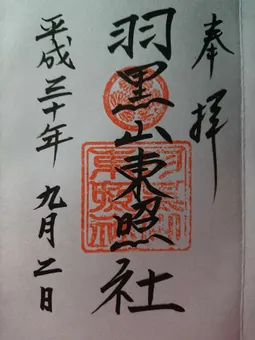 奉拝
羽黒山東照社
平成三十年九月二日